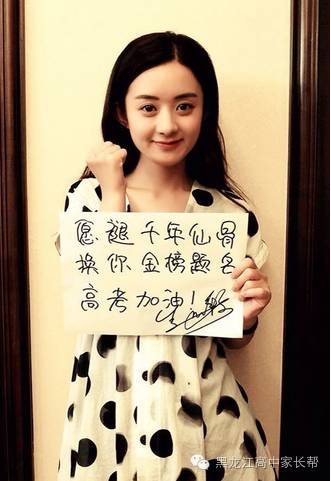 愿褪千年仙骨
换你金榜题名
高考加油！
黑龙江高中家长帮